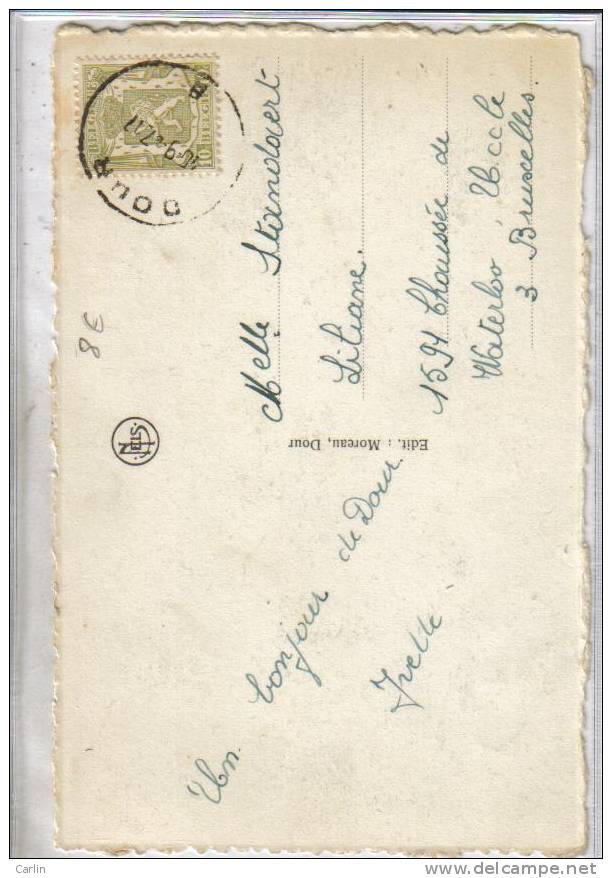 Un bonjour de Dour.
Yvette
Edit. : Moreau, Dour
NELS
BELGIE
BELGIQUE
10
DOUR
B
8€
Melle Standaert
Liliane.
1594 Chaussée de
Waterloo Uccle
3 Bruxelles.
Carlin
www.delcampe.net